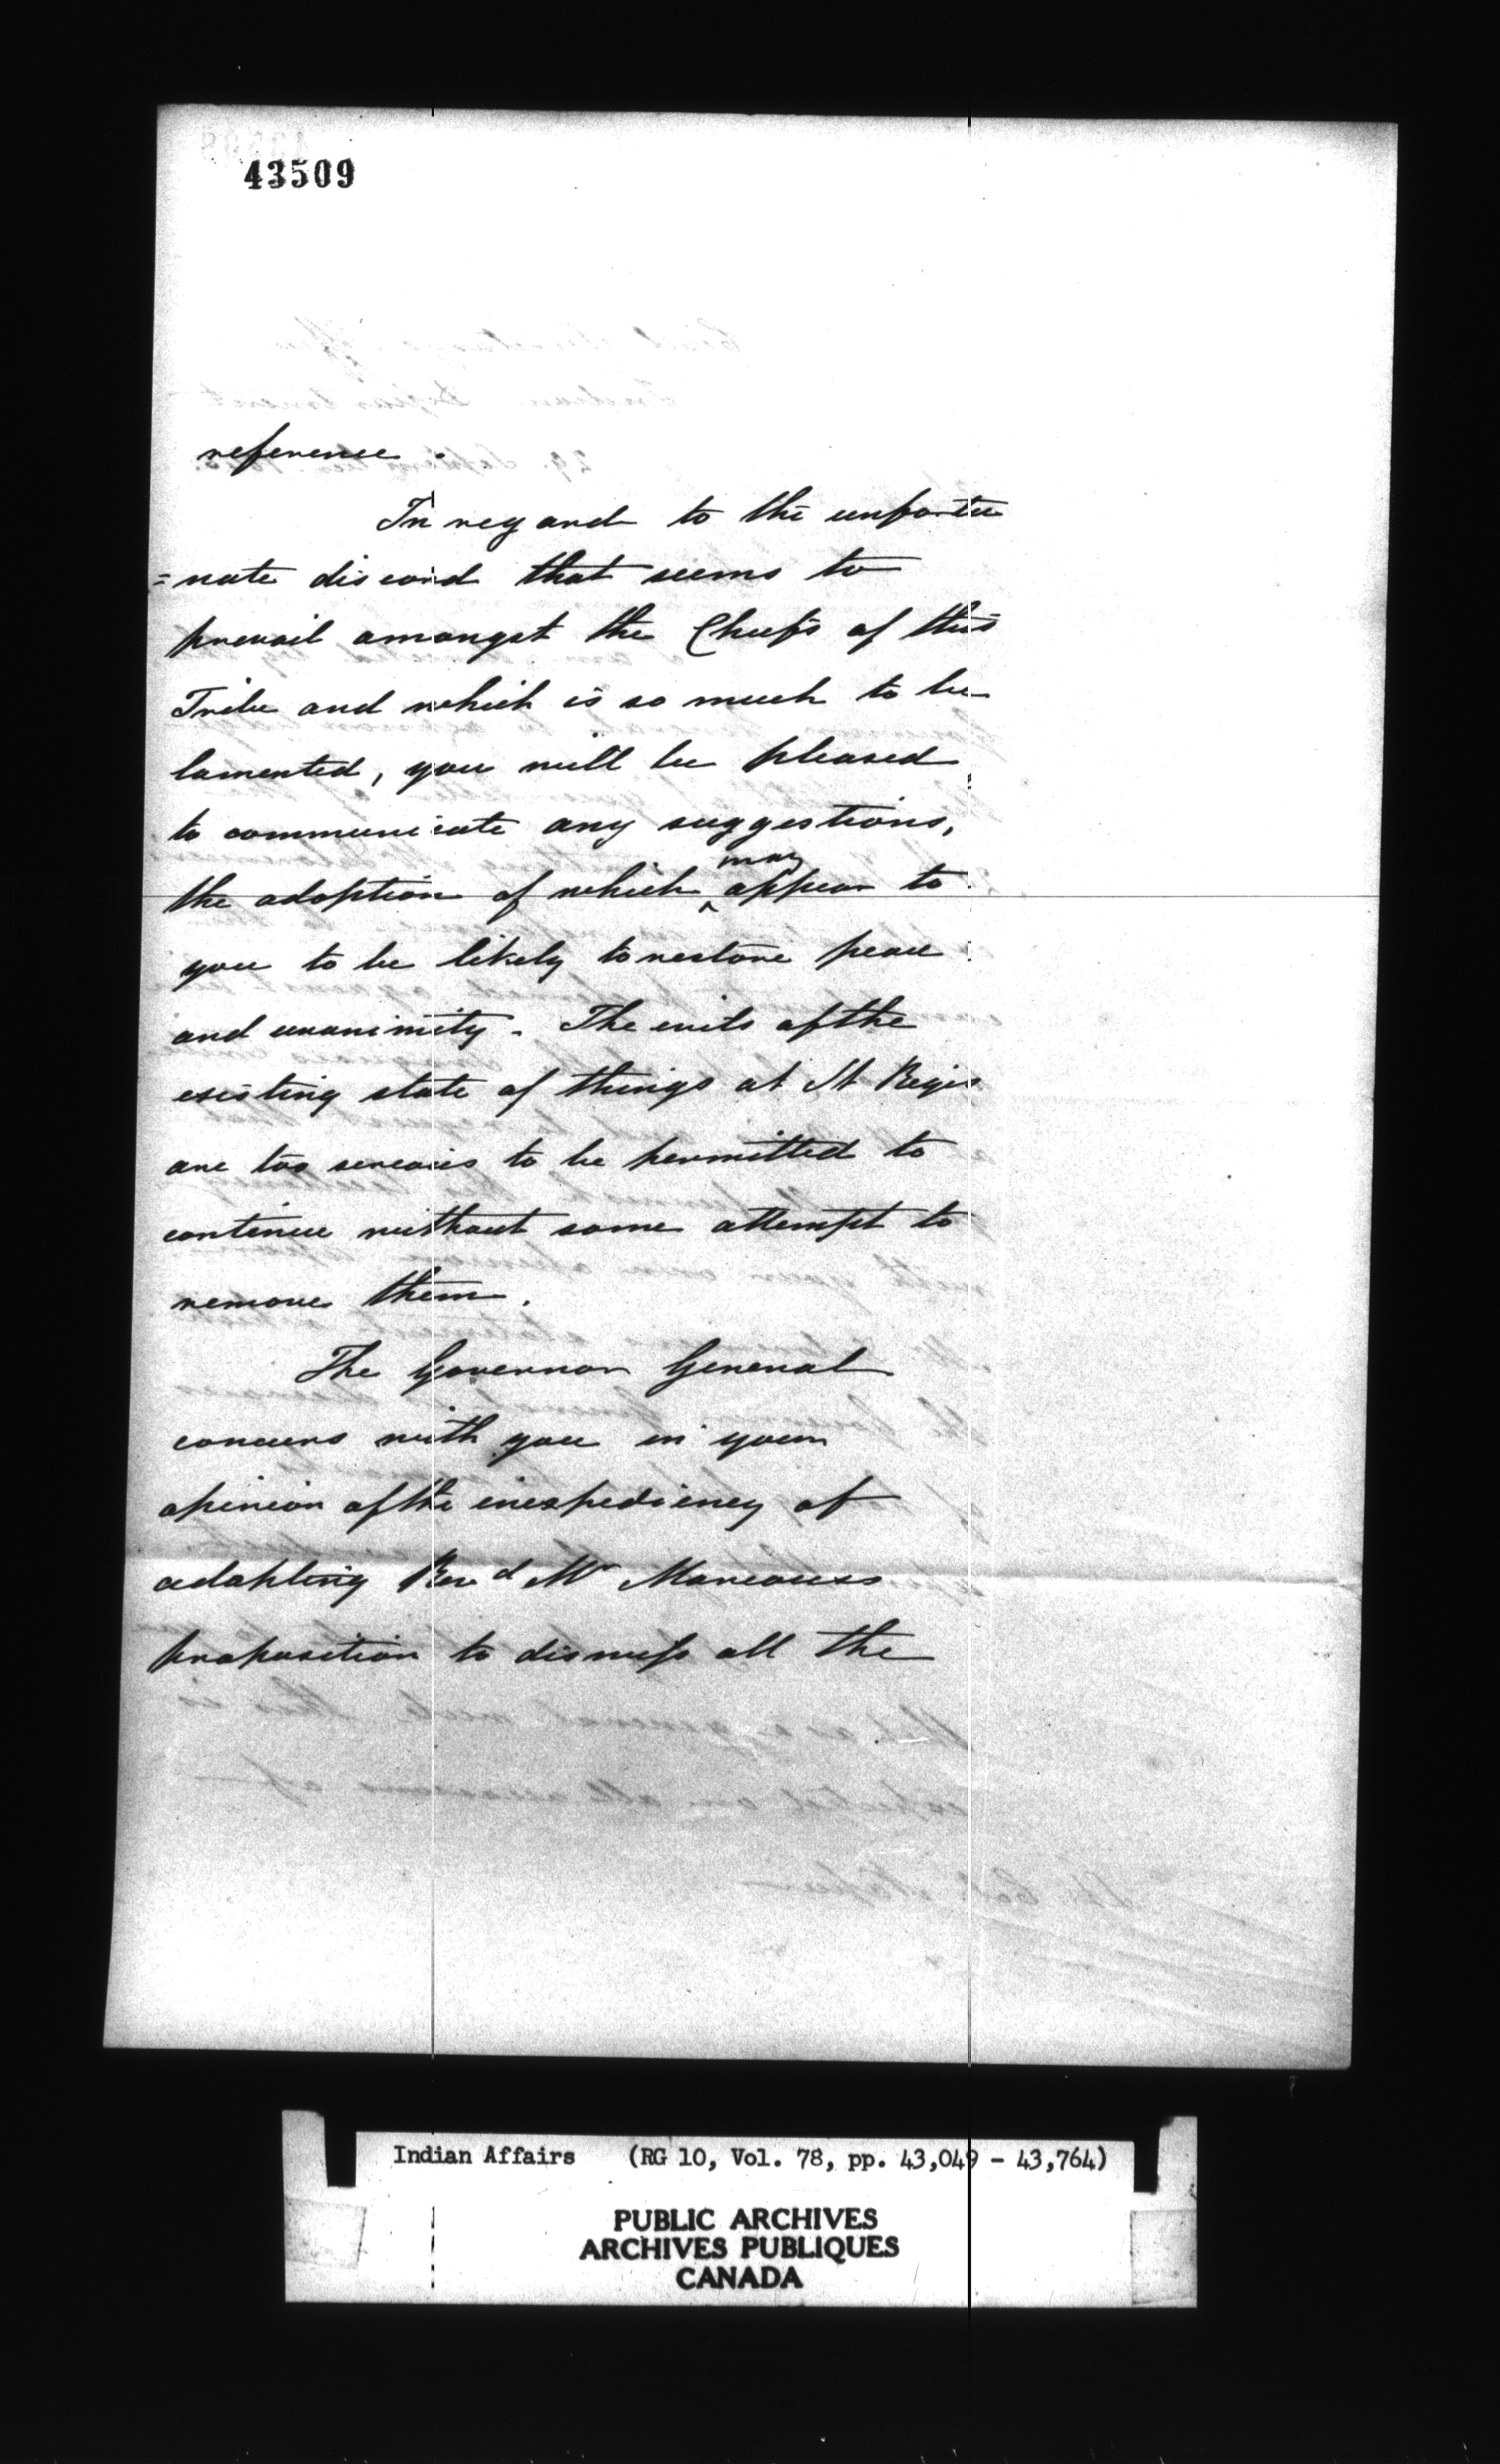 43509
reference.
In regard to the unfortu
=nate discord that seems to
prevail amongst the Chiefs of this
Tribe and which is so much to be
lamented, you will be pleased
to communicate any suggestions,
may
the adoption of which ^ appear to
you to be likely to restore peace
and unanimity. The evils of the
existing state of things at St Regis
are too serious to be permitted to
continue without some attempt to
remove them.
The Governor General
concurs with you in your
opinion of the inexpediency of
adopting Revd Mr Marcoux's
proposition to dismiss all the
Indian Affairs (RG 10, Vol. 78, pp. 43,049 - 43,764)
PUBLIC ARCHIVES
ARCHIVES PUBLIQUES
CANADA